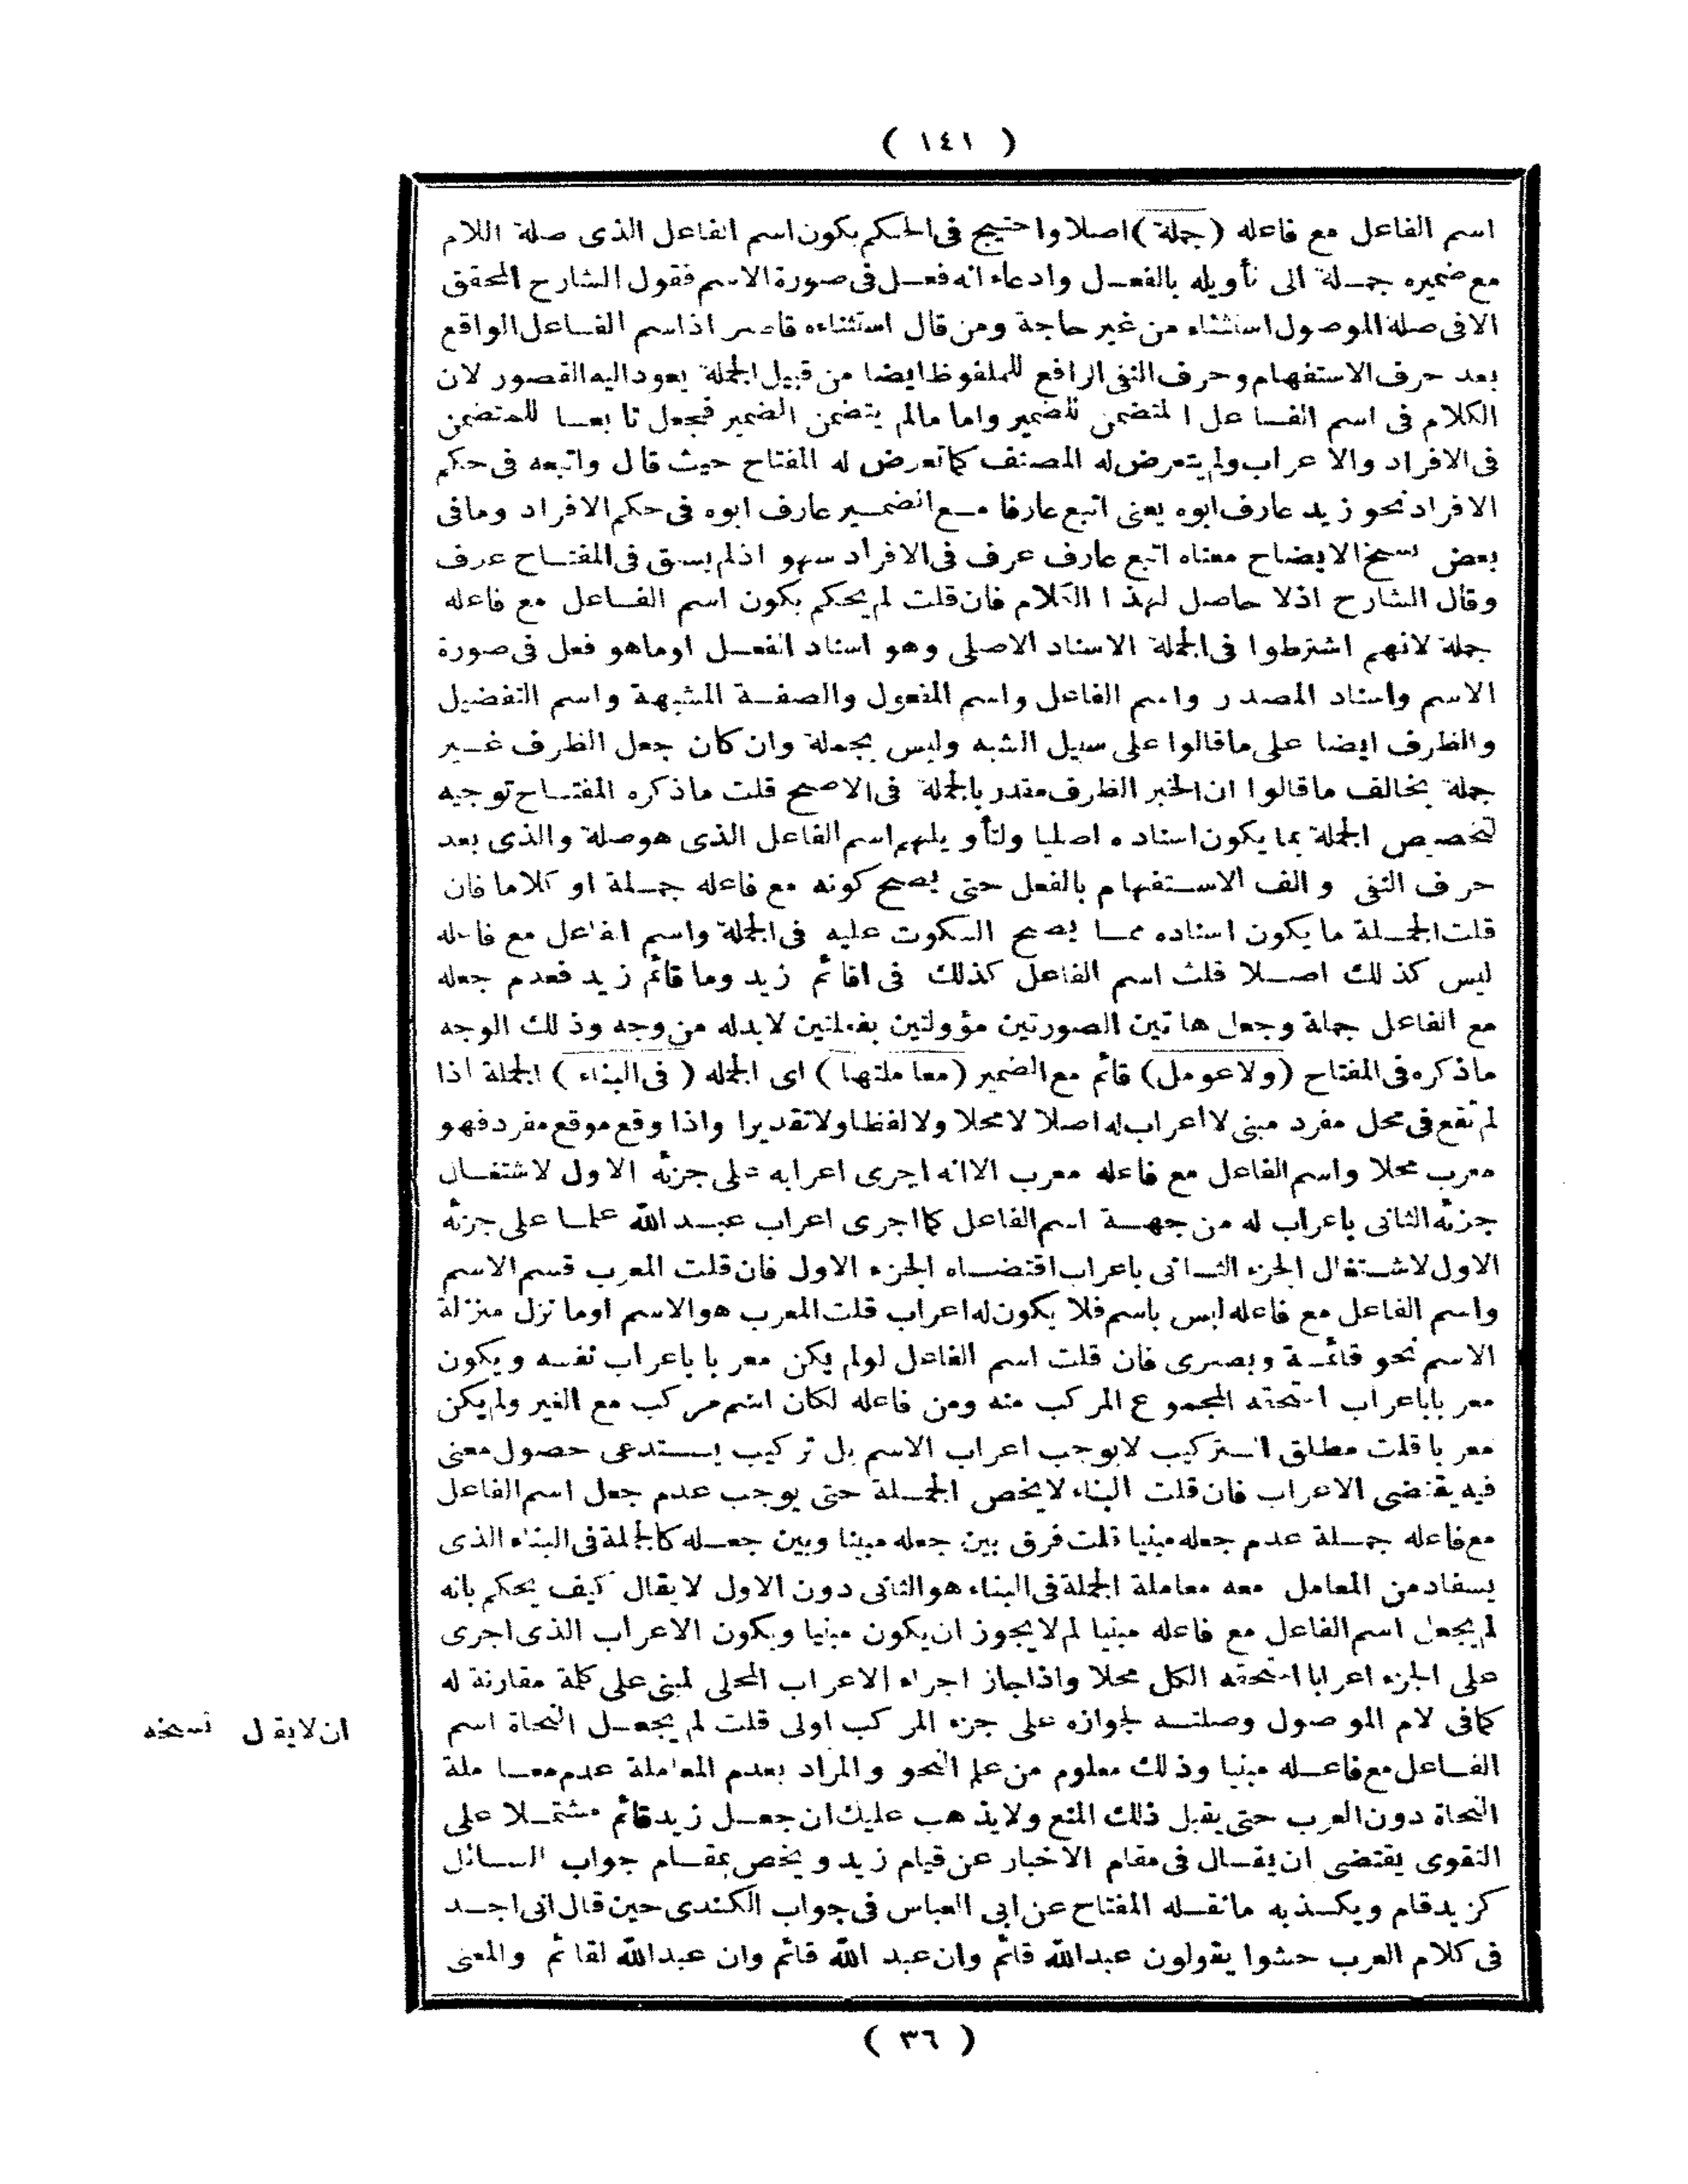 ( ١٤١ )
اسم الفاعل مع فاعله (جملة) اصلا واحتيج فى الحكم بكون اسم الفاعل الذى صلة اللام
مع ضميره جملة الى تأويله بالفعل وادعاء انه فعل فى صورة الاسم فقول الشارح المحقق
الا فى صلة الموصول استثناء من غير حاجة ومن قال استثناءه قاصر اذ اسم الفاعل الواقع
بعد حرف الاستفهام وحرف النفى الرافع للملفوظ ايضا من قبيل الجملة يعود اليه القصور لان
الكلام فى اسم الفاعل المتضمن للضمير واما مالم يتضمن الضمير فجعل تابعا للمتضمن
فى الافراد والاعراب ولم يتعرض له المصنف كما تعرض له المفتاح حيث قال واتبعه فى حكم
الافراد نحو زيد عارف ابوه يعنى اتبع عارفا مع الضمير عارف ابوه فى حكم الافراد وما فى
بعض نسخ الايضاح معناه اتبع عارف عرف فى الافراد سهو اذ لم يسبق فى المفتاح عرف
وقال الشارح اذ لا حاصل لهذا الكلام فان قلت لم يحكم بكون اسم الفاعل مع فاعله
جملة لانهم اشترطوا فى الجملة الاسناد الاصلى وهو اسناد الفعل اوماهو فعل فى صورة
الاسم واسناد المصدر واسم الفاعل واسم المفعول والصفة المشبهة واسم التفضيل
والظرف ايضا على ماقالوا على سبيل الشبه وليس بجملة وان كان جعل الظرف غير
جملة يخالف ماقالوا ان الخبر الظرف مقدر بالجملة فى الاصح قلت ماذكره المفتاح توجيه
لتخصيص الجملة بما يكون اسناده اصليا ولتأويلهم اسم الفاعل الذى هو صلة والذى بعد
حرف النفى والف الاستفهام بالفعل حتى يصح كونه مع فاعله جملة او كلاما فان
قلت الجملة مايكون اسناده مما يصح السكوت عليه فى الجملة واسم الفاعل مع فاعله
ليس كذلك اصلا قلت اسم الفاعل كذلك فى اقائم زيد وما قائم زيد فعدم جعله
مع الفاعل جملة وجعل هاتين الصورتين مؤولتين بفعلتين لابدله من وجه وذلك الوجه
ماذكره فى المفتاح (ولا عومل) قائم مع الضمير (معاملتها) اى الجمله (فى البناء) الجملة اذا
لم تقع فى محل مفرد مبنى لا اعراب له اصلا لا محلا ولا لفظا ولا تقديرا واذا وقع موقع مفرد فهو
معرب محلا واسم الفاعل مع فاعله معرب الاانه اجرى اعرابه على جزئه الاول لاشتغال
جزئه الثانى باعراب له من جهة اسم الفاعل كما اجرى اعراب عبد الله علما على جزئه
الاول لاشتغال الجزء الثانى باعراب اقتضاه الجزء الاول فان قلت المعرب قسم الاسم
واسم الفاعل مع فاعله ليس باسم فلا يكون له اعراب قلت المعرب هو الاسم اوما نزل منزلة
الاسم نحو قائمة وبصرى فان قلت اسم الفاعل لولم يكن معربا باعراب نفسه ويكون
معربا باعراب استحقه المجموع المركب منه ومن فاعله لكان اسم مركب مع الغير ولم يكن
معربا قلت مطلق التركيب لايوجب اعراب الاسم بل تركيب يستدعى حصول معنى
فيه يقتضى الاعراب فان قلت البناء لا يخص الجملة حتى يوجب عدم جعل اسم الفاعل
مع فاعله جملة عدم جعله مبنيا قلت فرق بين جعله مبنيا وبين جعله كالجملة فى البناء الذى
يستفاد من المعامل معه معاملة الجملة فى البناء هو الثانى دون الاول لايقال كيف يحكم بانه
لم يجعل اسم الفاعل مع فاعله مبنيا لم لا يجوز ان يكون مبنيا ويكون الاعراب الذى اجرى
على الجزء اعرابا استحقه الكل محلا واذا جاز اجراء الاعراب المحلى لمبنى على كلمة مقارنة له
كما فى لام الموصول وصلته لجوازه على جزء المركب اولى قلت لم يجعل النحاة اسم
ان لا يقل نسخه
الفاعل مع فاعله مبنيا وذلك معلوم من علم النحو والمراد بعدم المعاملة عدم معاملة
النحاة دون العرب حتى يقبل ذلك المنع ولا يذهب عليك ان جعل زيد قائم مشتملا على
التقوى يقتضى ان يقال فى مقام الاخبار عن قيام زيد ويخص بمقام جواب السائل
كزيد قام ويكذبه مانقله المفتاح عن ابى العباس فى جواب الكندى حين قال انى اجد
فى كلام العرب حشوا يقولون عبدالله قائم وان عبد الله قائم وان عبدالله لقائم والمعنى
( ٣٦ )